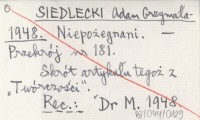 SIEDLECKI Adam Grzymała-
1948. Niepożegnani. —
Przekrój nr 181.
Skrót artykułu tegoż z
„Twórczości".
Rec.: Dr M. 1948.